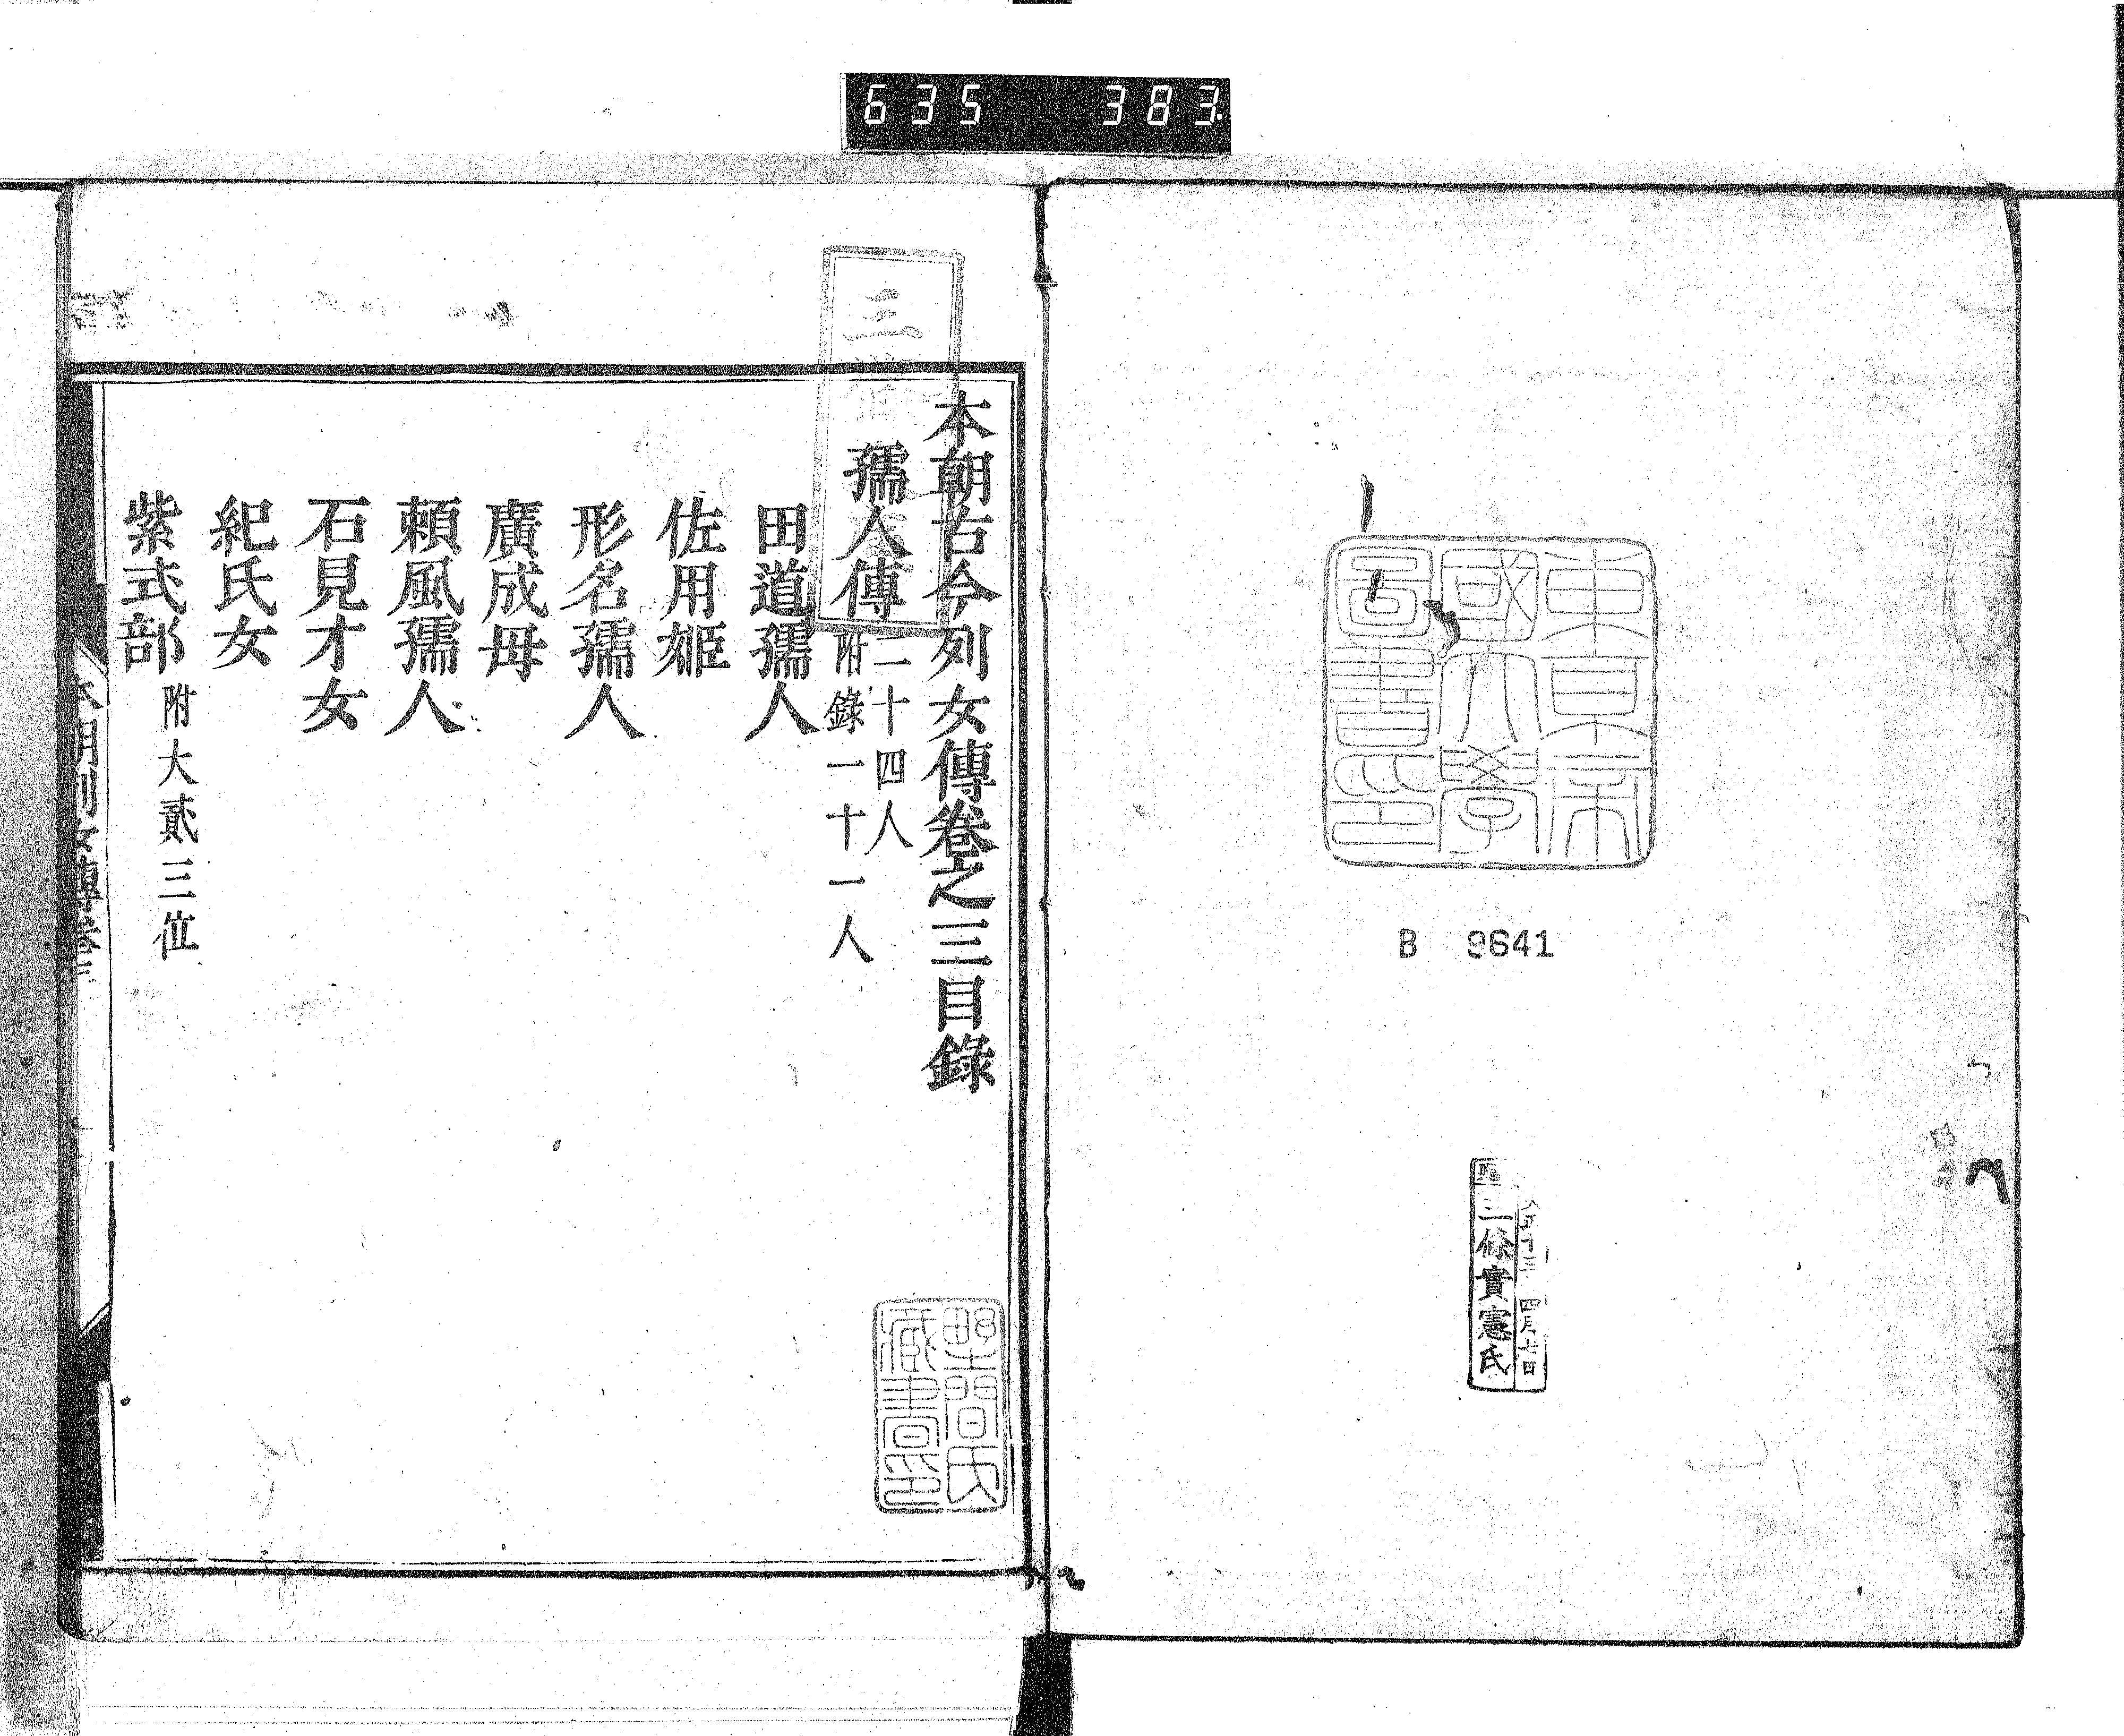 635 383
東京帝
國大學
圖書印
B 9641
四月七日
三條實憲氏
本朝古今列女傳卷之三目錄
孺人傳
二十四人
附錄一十一人
田道孺人
佐用姬
形名孺人
廣成母
賴風孺人
石見才女
紀氏女
紫式部
附大貳三位
野間氏
藏書印
本朝列女傳卷三